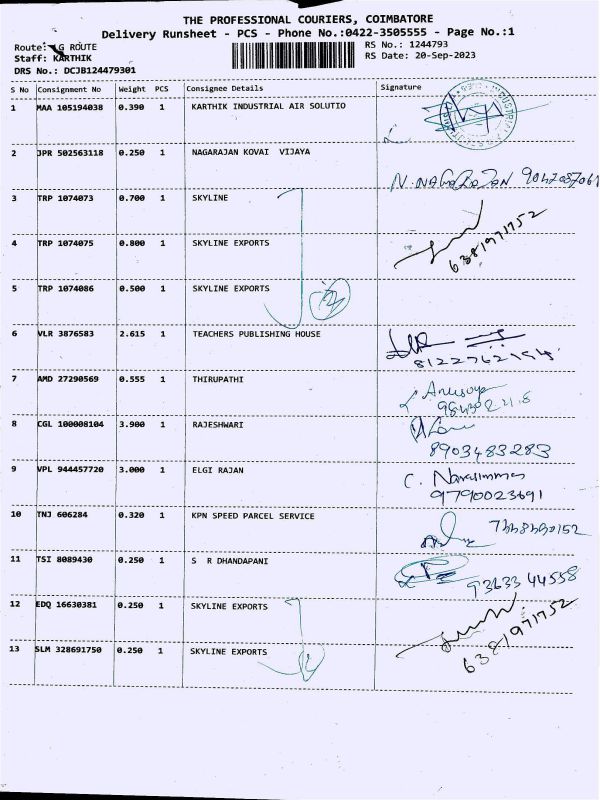 THE PROFESSIONAL COURIERS, COIMBATORE
Delivery Runsheet - PCS - Phone No.:0422-3505555 - Page No.:1
Route: LG ROUTE
RS No.: 1244793
Staff: KARTHIK
RS Date: 20-Sep-2023
DRS No.: DCJB124479301
S No Consignment No Weight PCS Consignee Details Signature
1 MAA 105194038 0.390 1 KARTHIK INDUSTRIAL AIR SOLUTIO
2 JPR 502563118 0.250 1 NAGARAJAN KOVAI VIJAYA
N.NAGARAJAN
3 TRP 1074073 0.700 1 SKYLINE
4 TRP 1074075 0.800 1 SKYLINE EXPORTS
6381971752
5 TRP 1074086 0.500 1 SKYLINE EXPORTS
6 VLR 3876583 2.615 1 TEACHERS PUBLISHING HOUSE
7 AMD 27290569 0.555 1 THIRUPATHI
8 CGL 100008104 3.900 1 RAJESHWARI
8903483283
9 VPL 944457720 3.000 1 ELGI RAJAN
9790023691
10 TNJ 606284 0.320 1 KPN SPEED PARCEL SERVICE
11 TSI 8089430 0.250 1 S R DHANDAPANI
93633 44558
12 EDQ 16630381 0.250 1 SKYLINE EXPORTS
13 SLM 328691750 0.250 1 SKYLINE EXPORTS
6381971752